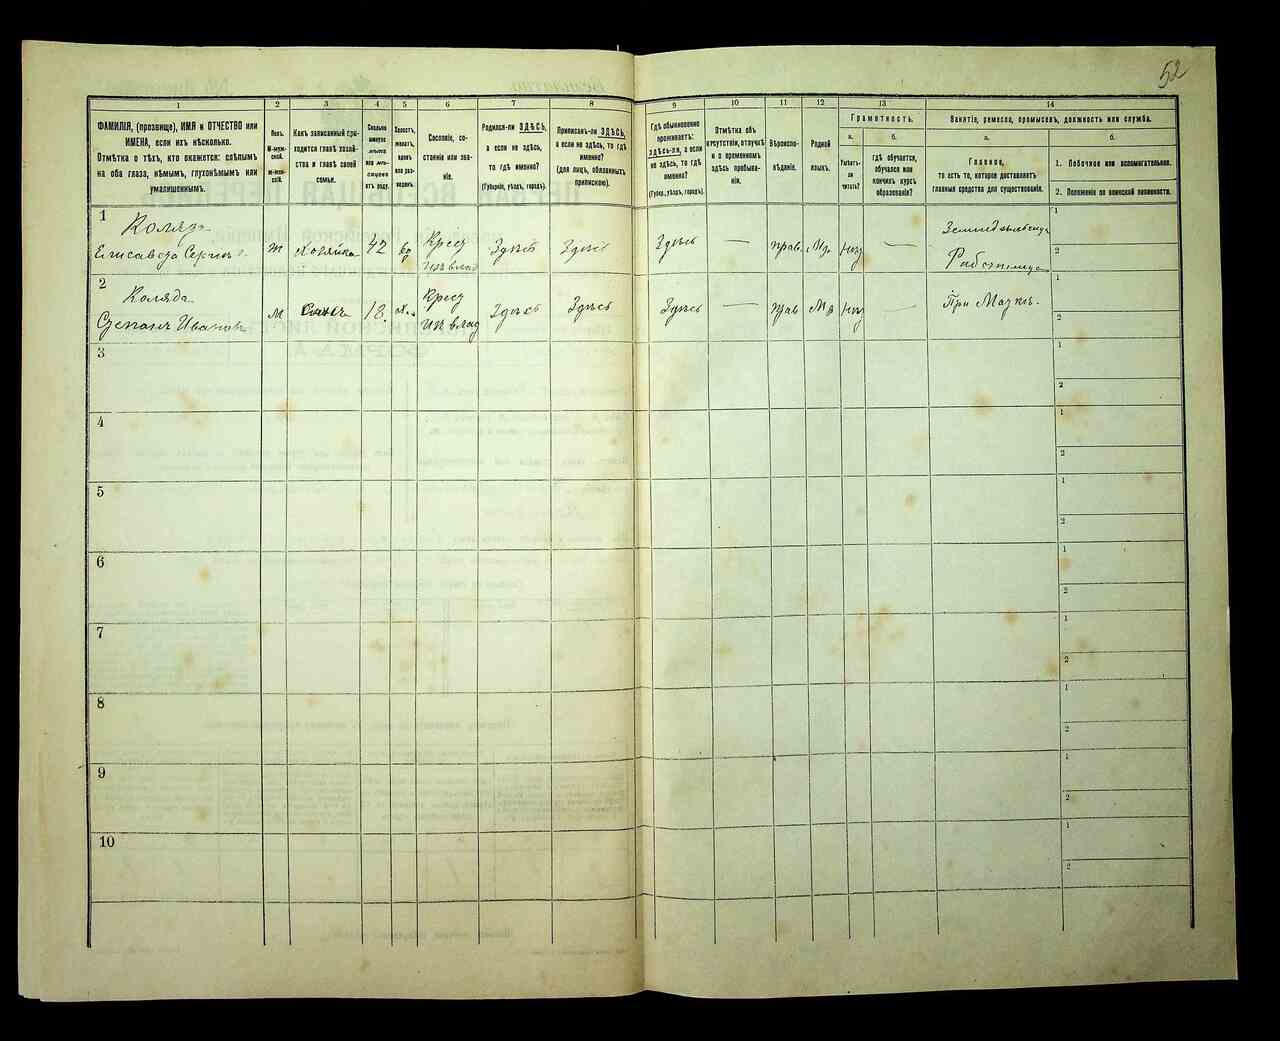 52
1
2
3
4
5
6
7
8
9
10
11
12
13
14
ФАМИЛІЯ, (прозвище), ИМЯ и ОТЧЕСТВО или
ИМЕНА, если ихъ нѣсколько.
Отмѣтка о тѣхъ, кто окажется: слѣпымъ
на оба глаза, нѣмымъ, глухонѣмымъ или
умалишеннымъ.
Полъ.
М-муж-
ской.
Ж-жен-
скій.
Какъ записанный при-
ходится главѣ хозяй-
ства и главѣ своей
семьи.
Сколько
минуло
лѣтъ
или мѣ-
сяцевъ
отъ роду.
Холостъ,
женатъ,
вдовъ
или раз-
веденъ.
Сословіе, со-
стояніе или зва-
ніе.
Родился-ли ЗДѢСЬ,
а если не здѣсь,
то гдѣ именно?
(Губернія, уѣздъ, городъ).
Приписанъ-ли ЗДѢСЬ,
а если не здѣсь, то гдѣ
именно?
(для лицъ, обязанныхъ
припискою).
Гдѣ обыкновенно
проживаетъ:
ЗДѢСЬ-ЛИ, а если
не здѣсь, то гдѣ
именно?
(Губерн., уѣздъ, городъ).
Отмѣтка объ
отсутствіи, отлучкѣ
и о временномъ
здѣсь пребыва-
ніи.
Вѣроиспо-
вѣданіе.
Родной
языкъ.
Грамотность.
а.
Умѣетъ-
ли
читать?
б.
Гдѣ обучается,
обучался или
кончилъ курсъ
образованія?
Занятіе, ремесло, промыселъ, должность или служба.
а.
Главное,
то есть то, которое доставляетъ
главныя средства для существованія.
б.
1. Побочное или вспомогательное.
2. Положеніе по воинской повинности.
1
Коляда
Елисавета Сергѣев.
Ж
Хозяйка
42
вд
Крест
изъ влад
Здѣсь
Здѣсь
Здѣсь
—
прав.
Мр.
Нѣт
—
Земледѣльица
Работница
1
2
2
Коляда
Степанъ Иванов
М
Сынъ
18
х.
Крест
изъ влад
Здѣсь
Здѣсь
Здѣсь
—
Прав
Мр
Нѣт
—
При Матки.
1
2
3
1
2
4
1
2
5
1
2
6
1
2
7
1
2
8
1
2
9
1
2
10
1
2